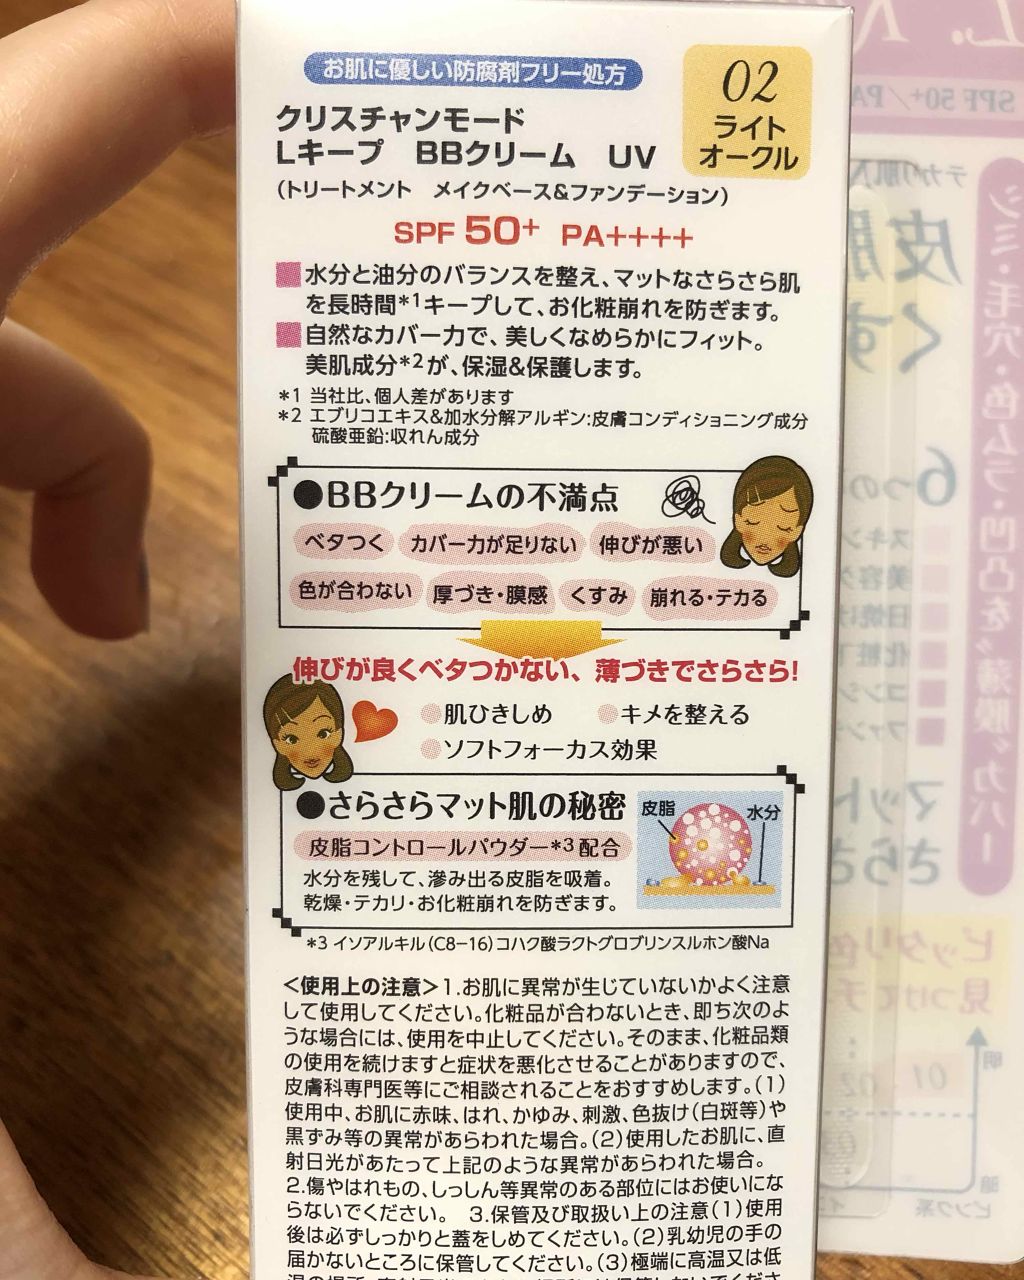 お肌に優しい防腐剤フリー処方
02
ライト
オークル
クリスチャンモード
Lキープ BBクリーム UV
(トリートメント メイクベース&ファンデーション)
SPF 50+ PA++++
水分と油分のバランスを整え、マットなさらさら肌
を長時間*1キープして、お化粧崩れを防ぎます。
自然なカバー力で、美しくなめらかにフィット。
美肌成分*2が、保湿&保護します。
*1 当社比、個人差があります
*2 エブリコエキス&加水分解アルギン:皮膚コンディショニング成分
硫酸亜鉛:収れん成分
●BBクリームの不満点
ベタつく カバー力が足りない 伸びが悪い
色が合わない 厚づき・膜感 くすみ 崩れる・テカる
伸びが良くベタつかない、薄づきでさらさら!
肌ひきしめ キメを整える
ソフトフォーカス効果
●さらさらマット肌の秘密
皮脂 水分
皮脂コントロールパウダー*3配合
水分を残して、滲み出る皮脂を吸着。
乾燥・テカリ・お化粧崩れを防ぎます。
*3 イソアルキル(C8-16)コハク酸ラクトグロブリンスルホン酸Na
<使用上の注意>1.お肌に異常が生じていないかよく注意
して使用してください。化粧品が合わないとき、即ち次のよ
うな場合には、使用を中止してください。そのまま、化粧品類
の使用を続けますと症状を悪化させることがありますので、
皮膚科専門医等にご相談されることをおすすめします。(1)
使用中、お肌に赤味、はれ、かゆみ、刺激、色抜け(白斑等)や
黒ずみ等の異常があらわれた場合。(2)使用したお肌に、直
射日光があたって上記のような異常があらわれた場合。
2.傷やはれもの、しっしん等異常のある部位にはお使いにな
らないでください。 3.保管及び取扱い上の注意(1)使用
後は必ずしっかりと蓋をしめてください。(2)乳幼児の手の
届かないところに保管してください。(3)極端に高温又は低
SPF 50+/PA
シミ・毛穴・色ムラ・凹凸を"薄膜"カバー
6つの
マット
さらさ
ピッタリ色
見つけて手
01
02
明
暗
ピンク系